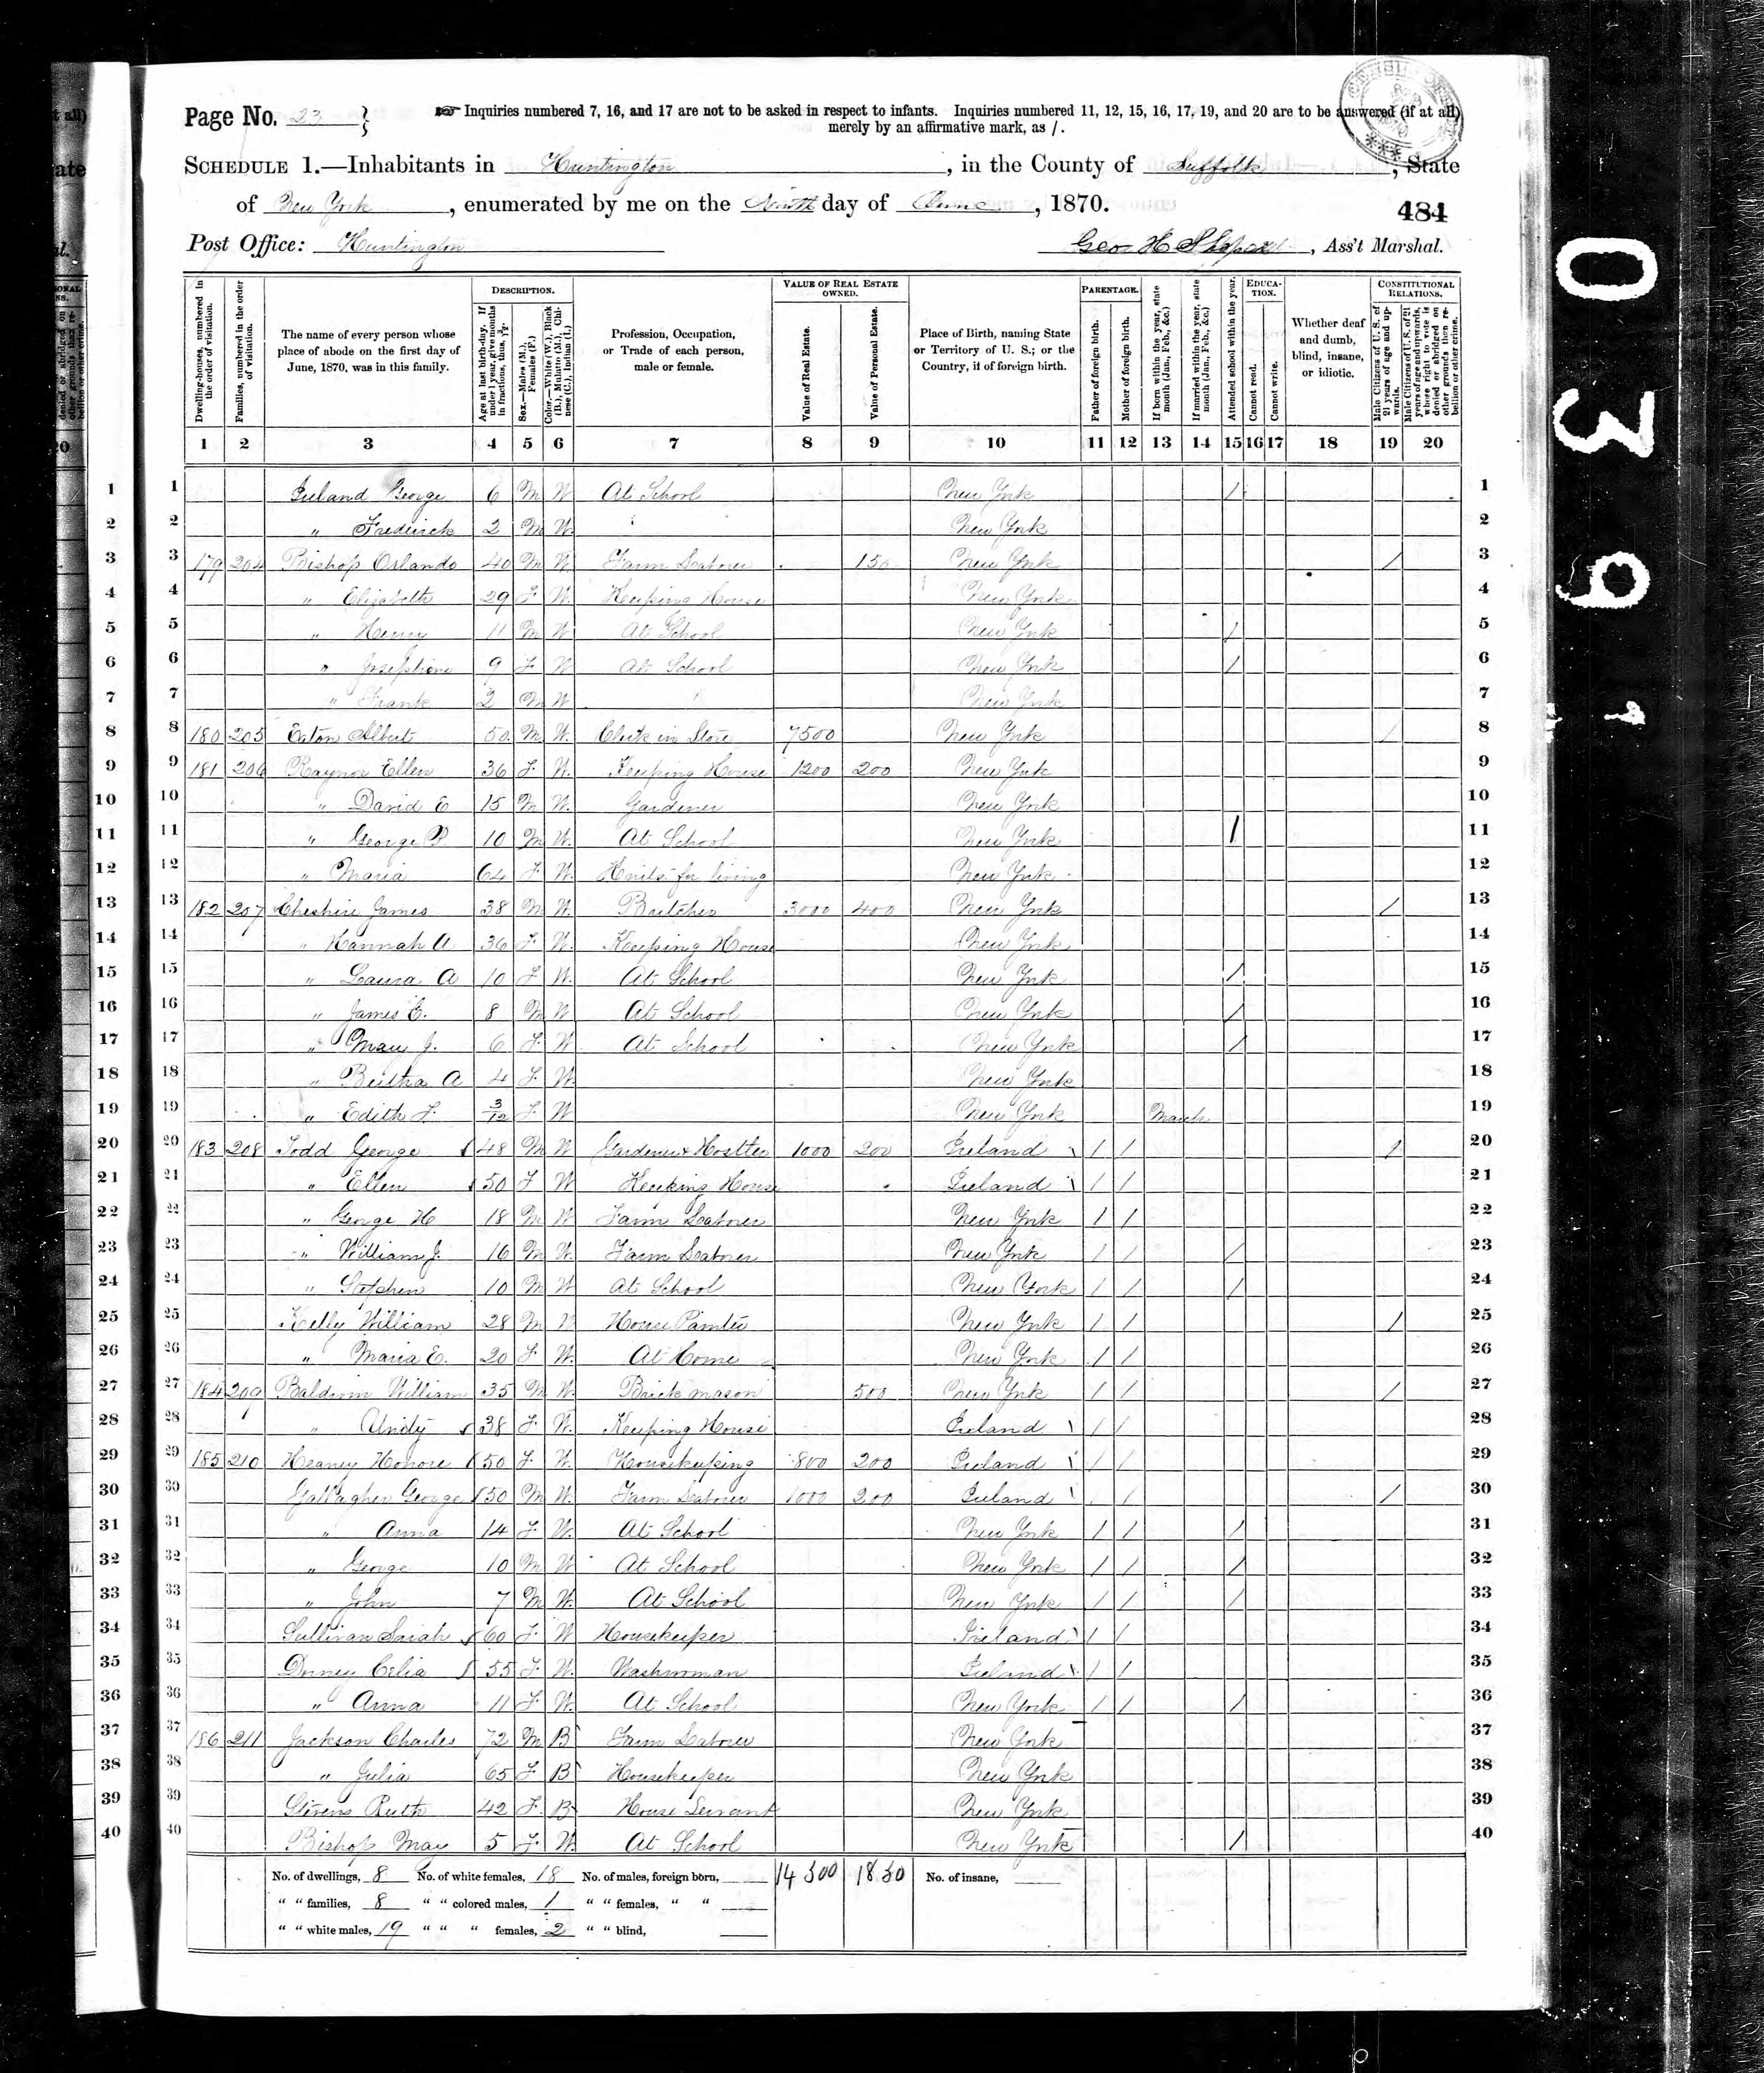 Page No. 23 }
☞ Inquiries numbered 7, 16, and 17 are not to be asked in respect to infants. Inquiries numbered 11, 12, 15, 16, 17, 19, and 20 are to be answered (if at all)
merely by an affirmative mark, as /.
SCHEDULE 1.—Inhabitants in Huntington, in the County of Suffolk, State
of New York, enumerated by me on the Ninth day of June, 1870.
484
Post Office: Huntington
Geo H, Ass't Marshal.
Dwelling-houses, numbered in the order of visitation.
Families, numbered in the order of visitation.
The name of every person whose place of abode on the first day of June, 1870, was in this family.
DESCRIPTION.
Age at last birth-day. If under 1 year, give months in fractions, thus, 3/12.
Sex.—Males (M.), Females (F.)
Color.—White (W.), Black (B.), Mulatto (M.), Chinese (C.), Indian (I.)
Profession, Occupation, or Trade of each person, male or female.
VALUE OF REAL ESTATE OWNED.
Value of Real Estate.
Value of Personal Estate.
Place of Birth, naming State or Territory of U. S.; or the Country, if of foreign birth.
PARENTAGE.
Father of foreign birth.
Mother of foreign birth.
If born within the year, state month (Jan., Feb., &c.)
If married within the year, state month (Jan., Feb., &c.)
Attended school within the year.
EDUCATION.
Cannot read.
Cannot write.
Whether deaf and dumb, blind, insane, or idiotic.
CONSTITUTIONAL RELATIONS.
Male Citizens of U. S. of 21 years of age and upwards.
Male Citizens of U. S. of 21 years of age and upwards, whose right to vote is denied or abridged on other grounds than rebellion or other crime.
1 2 3 4 5 6 7 8 9 10 11 12 13 14 15 16 17 18 19 20
1 George 6 M W At School New York / 1
2 " Frederick 2 M W New York 2
3 179 204 Bishop Orlando 40 M W Farm Laborer 150 New York / 3
4 " Elizabeth 29 F W Keeping House New York 4
5 " Henry 11 M W At School New York / 5
6 " Josephine 9 F W At School New York / 6
7 " Frank 2 M W New York 7
8 180 205 Eaton Albert 50 M W Clerk in Store 7500 New York / 8
9 181 206 Raynor Ellen 36 F W Keeping House 1200 200 New York 9
10 " David E 15 M W Gardener New York 10
11 " George P 10 M W At School New York / 11
12 " Maria 64 F W Knits for living New York 12
13 182 207 Cheshire James 38 M W Butcher 3000 400 New York / 13
14 " Hannah A 36 F W Keeping House New York 14
15 " Laura A 10 F W At School New York / 15
16 " James E. 8 M W At School New York / 16
17 " Mary J. 6 F W At School New York / 17
18 " Bertha A 4 F W New York 18
19 " Edith F. 3/12 F W New York March 19
20 183 208 Todd George 48 M W Gardener & Hostler 1000 200 Ireland / / / 20
21 " Ellen 50 F W Keeping House Ireland / / 21
22 " George H 18 M W Farm Laborer New York / / 22
23 " William J. 16 M W Farm Laborer New York / / / 23
24 " Stephen 10 M W At School New York / / / 24
25 Kelly William 28 M W House Painter New York / / / 25
26 " Maria E. 20 F W At Home New York / / 26
27 184 209 Baldwin William 35 M W Brick mason 500 New York / / / 27
28 " 38 F W Keeping House Ireland / / 28
29 185 210 Heaney Honore 50 F W Housekeeping 800 200 Ireland / / 29
30 Gallagher George 50 M W Farm Laborer 1000 200 Ireland / / / 30
31 " Anna 14 F W At School New York / / / 31
32 " George 10 M W At School New York / / / 32
33 " John 7 M W At School New York / / / 33
34 Sullivan Sarah 60 F W Housekeeper Ireland / / 34
35 Dorney Celia 55 F W Washwoman Ireland / / 35
36 " Anna 11 F W At School New York / / / 36
37 186 211 Jackson Charles 72 M B Farm Laborer New York 37
38 " Julia 65 F B Housekeeper New York 38
39 Stevens Ruth 42 F B House Servant New York 39
40 Bishop May 5 F W At School New York / 40
No. of dwellings, 8 No. of white females, 18 No. of males, foreign born, 14300 1850 No. of insane,
" " families, 8 " " colored males, 1 " " females, " "
" " white males, 19 " " " females, 2 " " blind,
0391